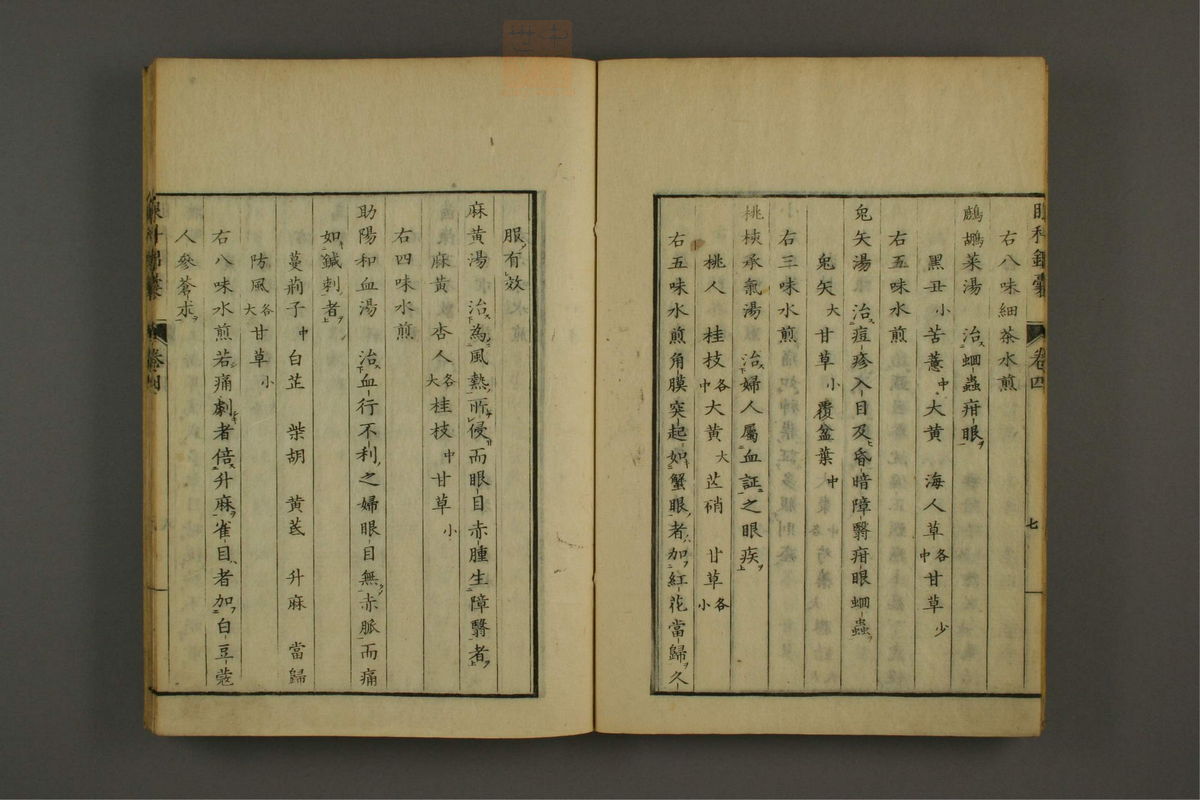 眼科錦囊 卷四 七
右八味細茶水煎
鷓鴣菜湯 治蛔蟲疳眼
黑丑小苦薏中大黃 海人草各中甘草少
右五味水煎
兔矢湯 治痘疹入目及昏暗障翳疳眼蛔蟲
兔矢大甘草小覆盆葉中
右三味水煎
桃核承氣湯 治婦人屬血証之眼疾
桃人 桂枝各中大黃大芒硝 甘草各小
右五味水煎角膜突起如蟹眼者加紅花當歸久
服有效
麻黃湯 治為風熱所侵而眼目赤腫生障翳者
麻黃杏人各大桂枝中甘草小
右四味水煎
助陽和血湯 治血行不利之婦眼目無赤脈而痛
如鍼刺者
蔓荊子中白芷 柴胡 黃芪 升麻 當歸
防風各大甘草小
右八味水煎若痛劇者倍升麻雀目者加白豆蔻
人參蒼朮